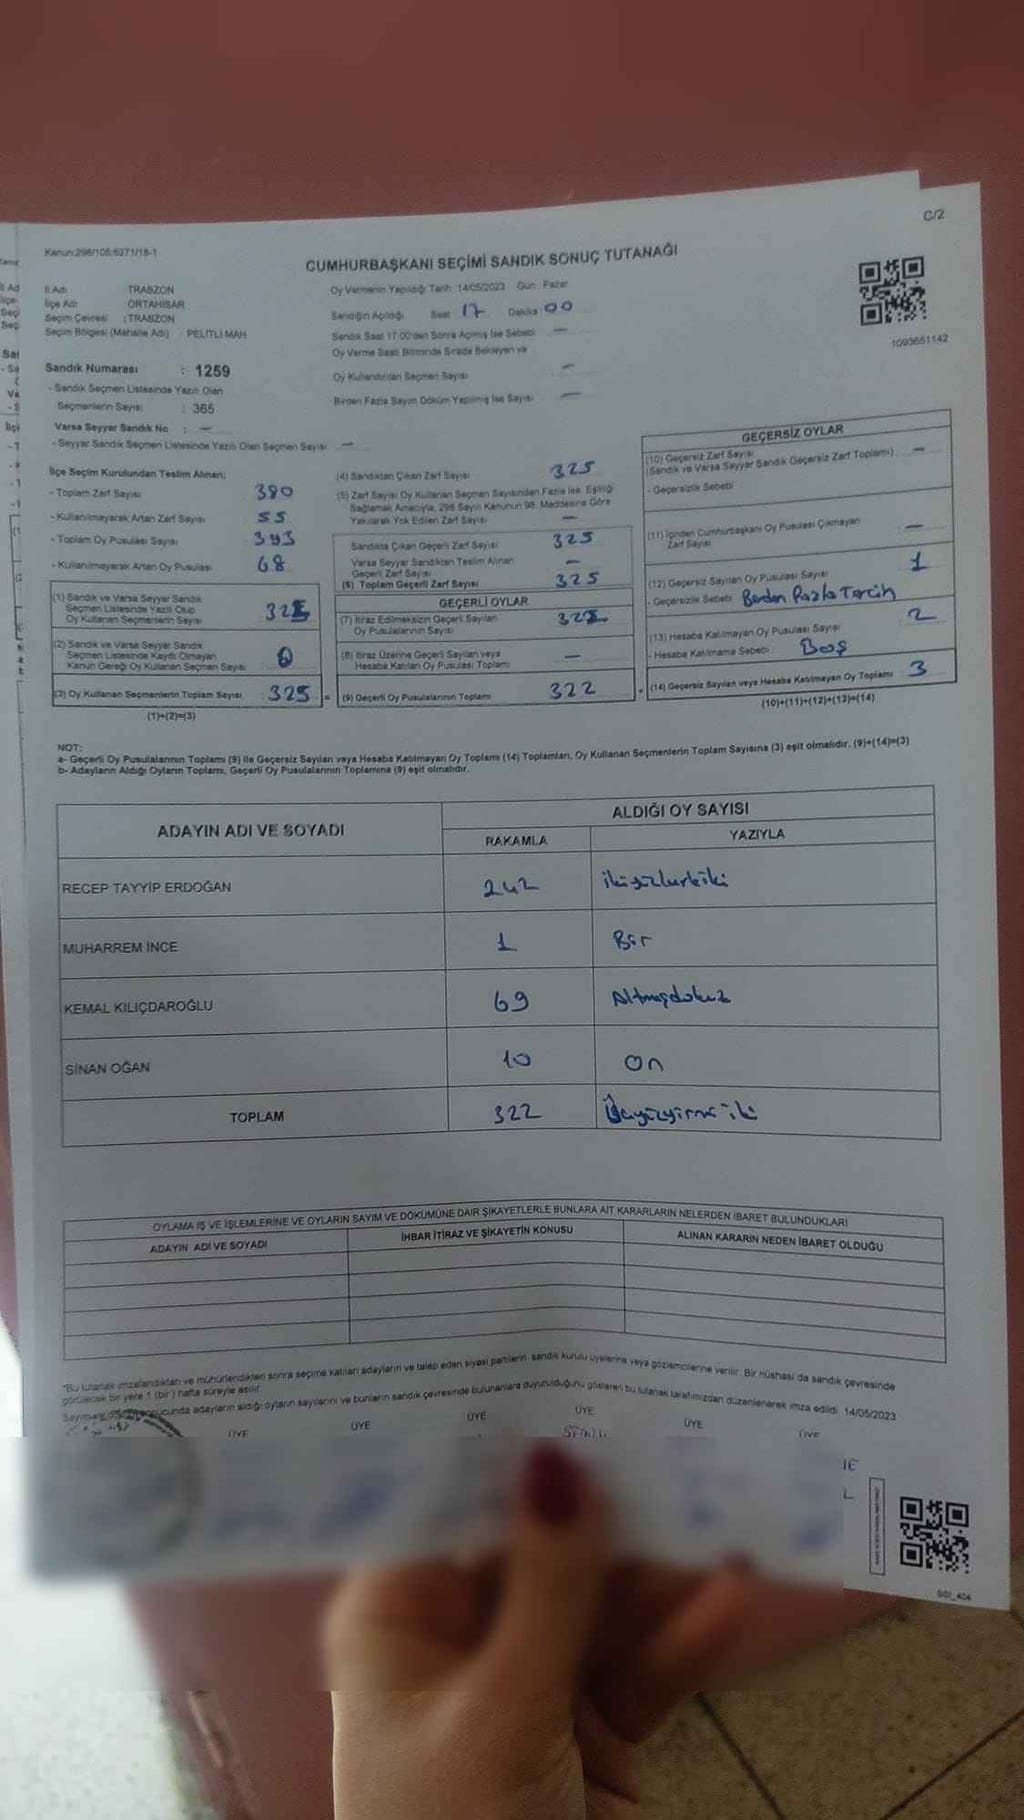 C/2
Kanun:298/105;6271/18-1
CUMHURBAŞKANI SEÇİMİ SANDIK SONUÇ TUTANAĞI
İl Adı TRABZON
İlçe Adı ORTAHİSAR
Seçim Çevresi : TRABZON
Seçim Bölgesi (Mahalle Adı) : PELİTLİ MAH
Oy Vermenin Yapıldığı Tarih 14/05/2023 Gün: Pazar
Sandığın Açıldığı Saat 17 Dakika 00
Sandık Saat 17:00'den Sonra Açılmış İse Sebebi —
Oy Verme Saati Bitiminde Sırada Bekleyen ve
Oy Kullandırılan Seçmen Sayısı —
Birden Fazla Sayım Döküm Yapılmış İse Sayısı —
1093651142
Sandık Numarası : 1259
- Sandık Seçmen Listesinde Yazılı Olan
Seçmenlerin Sayısı : 365
Varsa Seyyar Sandık No : —
- Seyyar Sandık Seçmen Listesinde Yazılı Olan Seçmen Sayısı —
İlçe Seçim Kurulundan Teslim Alınan;
- Toplam Zarf Sayısı 380
- Kullanılmayarak Artan Zarf Sayısı 55
- Toplam Oy Pusulası Sayısı 393
- Kullanılmayarak Artan Oy Pusulası 68
(1) Sandık ve Varsa Seyyar Sandık
Seçmen Listesinde Yazılı Olup
Oy Kullanan Seçmenlerin Sayısı 325
(2) Sandık ve Varsa Seyyar Sandık
Seçmen Listesinde Kaydı Olmayan
Kanun Gereği Oy Kullanan Seçmen Sayısı 0
(3) Oy Kullanan Seçmenlerin Toplam Sayısı 325
(1)+(2)=(3)
(4) Sandıktan Çıkan Zarf Sayısı 325
(5) Zarf Sayısı Oy Kullanan Seçmen Sayısından Fazla İse, Eşitliği
Sağlamak Amacıyla, 298 Sayılı Kanunun 98. Maddesine Göre
Yakılarak Yok Edilen Zarf Sayısı —
Sandıkta Çıkan Geçerli Zarf Sayısı 325
Varsa Seyyar Sandıktan Teslim Alınan
Geçerli Zarf Sayısı —
(6) Toplam Geçerli Zarf Sayısı 325
GEÇERLİ OYLAR
(7) İtiraz Edilmeksizin Geçerli Sayılan
Oy Pusulalarının Sayısı 322
(8) İtiraz Üzerine Geçerli Sayılan veya
Hesaba Katılan Oy Pusulası Toplamı —
= (9) Geçerli Oy Pusulalarının Toplamı 322
GEÇERSİZ OYLAR
(10) Geçersiz Zarf Sayısı
(Sandık ve Varsa Seyyar Sandık Geçersiz Zarf Toplamı) —
- Geçersizlik Sebebi
(11) İçinden Cumhurbaşkanı Oy Pusulası Çıkmayan
Zarf Sayısı —
(12) Geçersiz Sayılan Oy Pusulası Sayısı 1
- Geçersizlik Sebebi Birden Fazla Tercih
(13) Hesaba Katılmayan Oy Pusulası Sayısı 2
- Hesaba Katılmama Sebebi Boş
+ (14) Geçersiz Sayılan veya Hesaba Katılmayan Oy Toplamı 3
(10)+(11)+(12)+(13)=(14)
NOT:
a- Geçerli Oy Pusulalarının Toplamı (9) ile Geçersiz Sayılan veya Hesaba Katılmayan Oy Toplamı (14) Toplamları, Oy Kullanan Seçmenlerin Toplam Sayısına (3) eşit olmalıdır. (9)+(14)=(3)
b- Adayların Aldığı Oyların Toplamı, Geçerli Oy Pusulalarının Toplamına (9) eşit olmalıdır.
ADAYIN ADI VE SOYADI ALDIĞI OY SAYISI
RAKAMLA YAZIYLA
RECEP TAYYİP ERDOĞAN 242 ikiyüzkırkiki
MUHARREM İNCE 1 Bir
KEMAL KILIÇDAROĞLU 69 Altmışdokuz
SİNAN OĞAN 10 On
TOPLAM 322 Üçyüzyirmi iki
OYLAMA İŞ VE İŞLEMLERİNE VE OYLARIN SAYIM VE DÖKÜMÜNE DAİR ŞİKAYETLERLE BUNLARA AİT KARARLARIN NELERDEN İBARET BULUNDUKLARI
ADAYIN ADI VE SOYADI İHBAR İTİRAZ VE ŞİKAYETİN KONUSU ALINAN KARARIN NEDEN İBARET OLDUĞU
*Bu tutanak imzalandıktan ve mühürlendikten sonra seçime katılan adayların ve talep eden siyasi partilerin sandık kurulu üyelerine veya gözlemcilerine verilir. Bir nüshası da sandık çevresinde
görülecek bir yere 1 (bir) hafta süreyle asılır.
adayların aldığı oyların sayılarını ve bunların sandık çevresinde bulunanlara duyurulduğunu gösteren bu tutanak tarafımızdan düzenlenerek imza edildi. 14/05/2023
ÜYE ÜYE ÜYE ÜYE ÜYE ÜYE